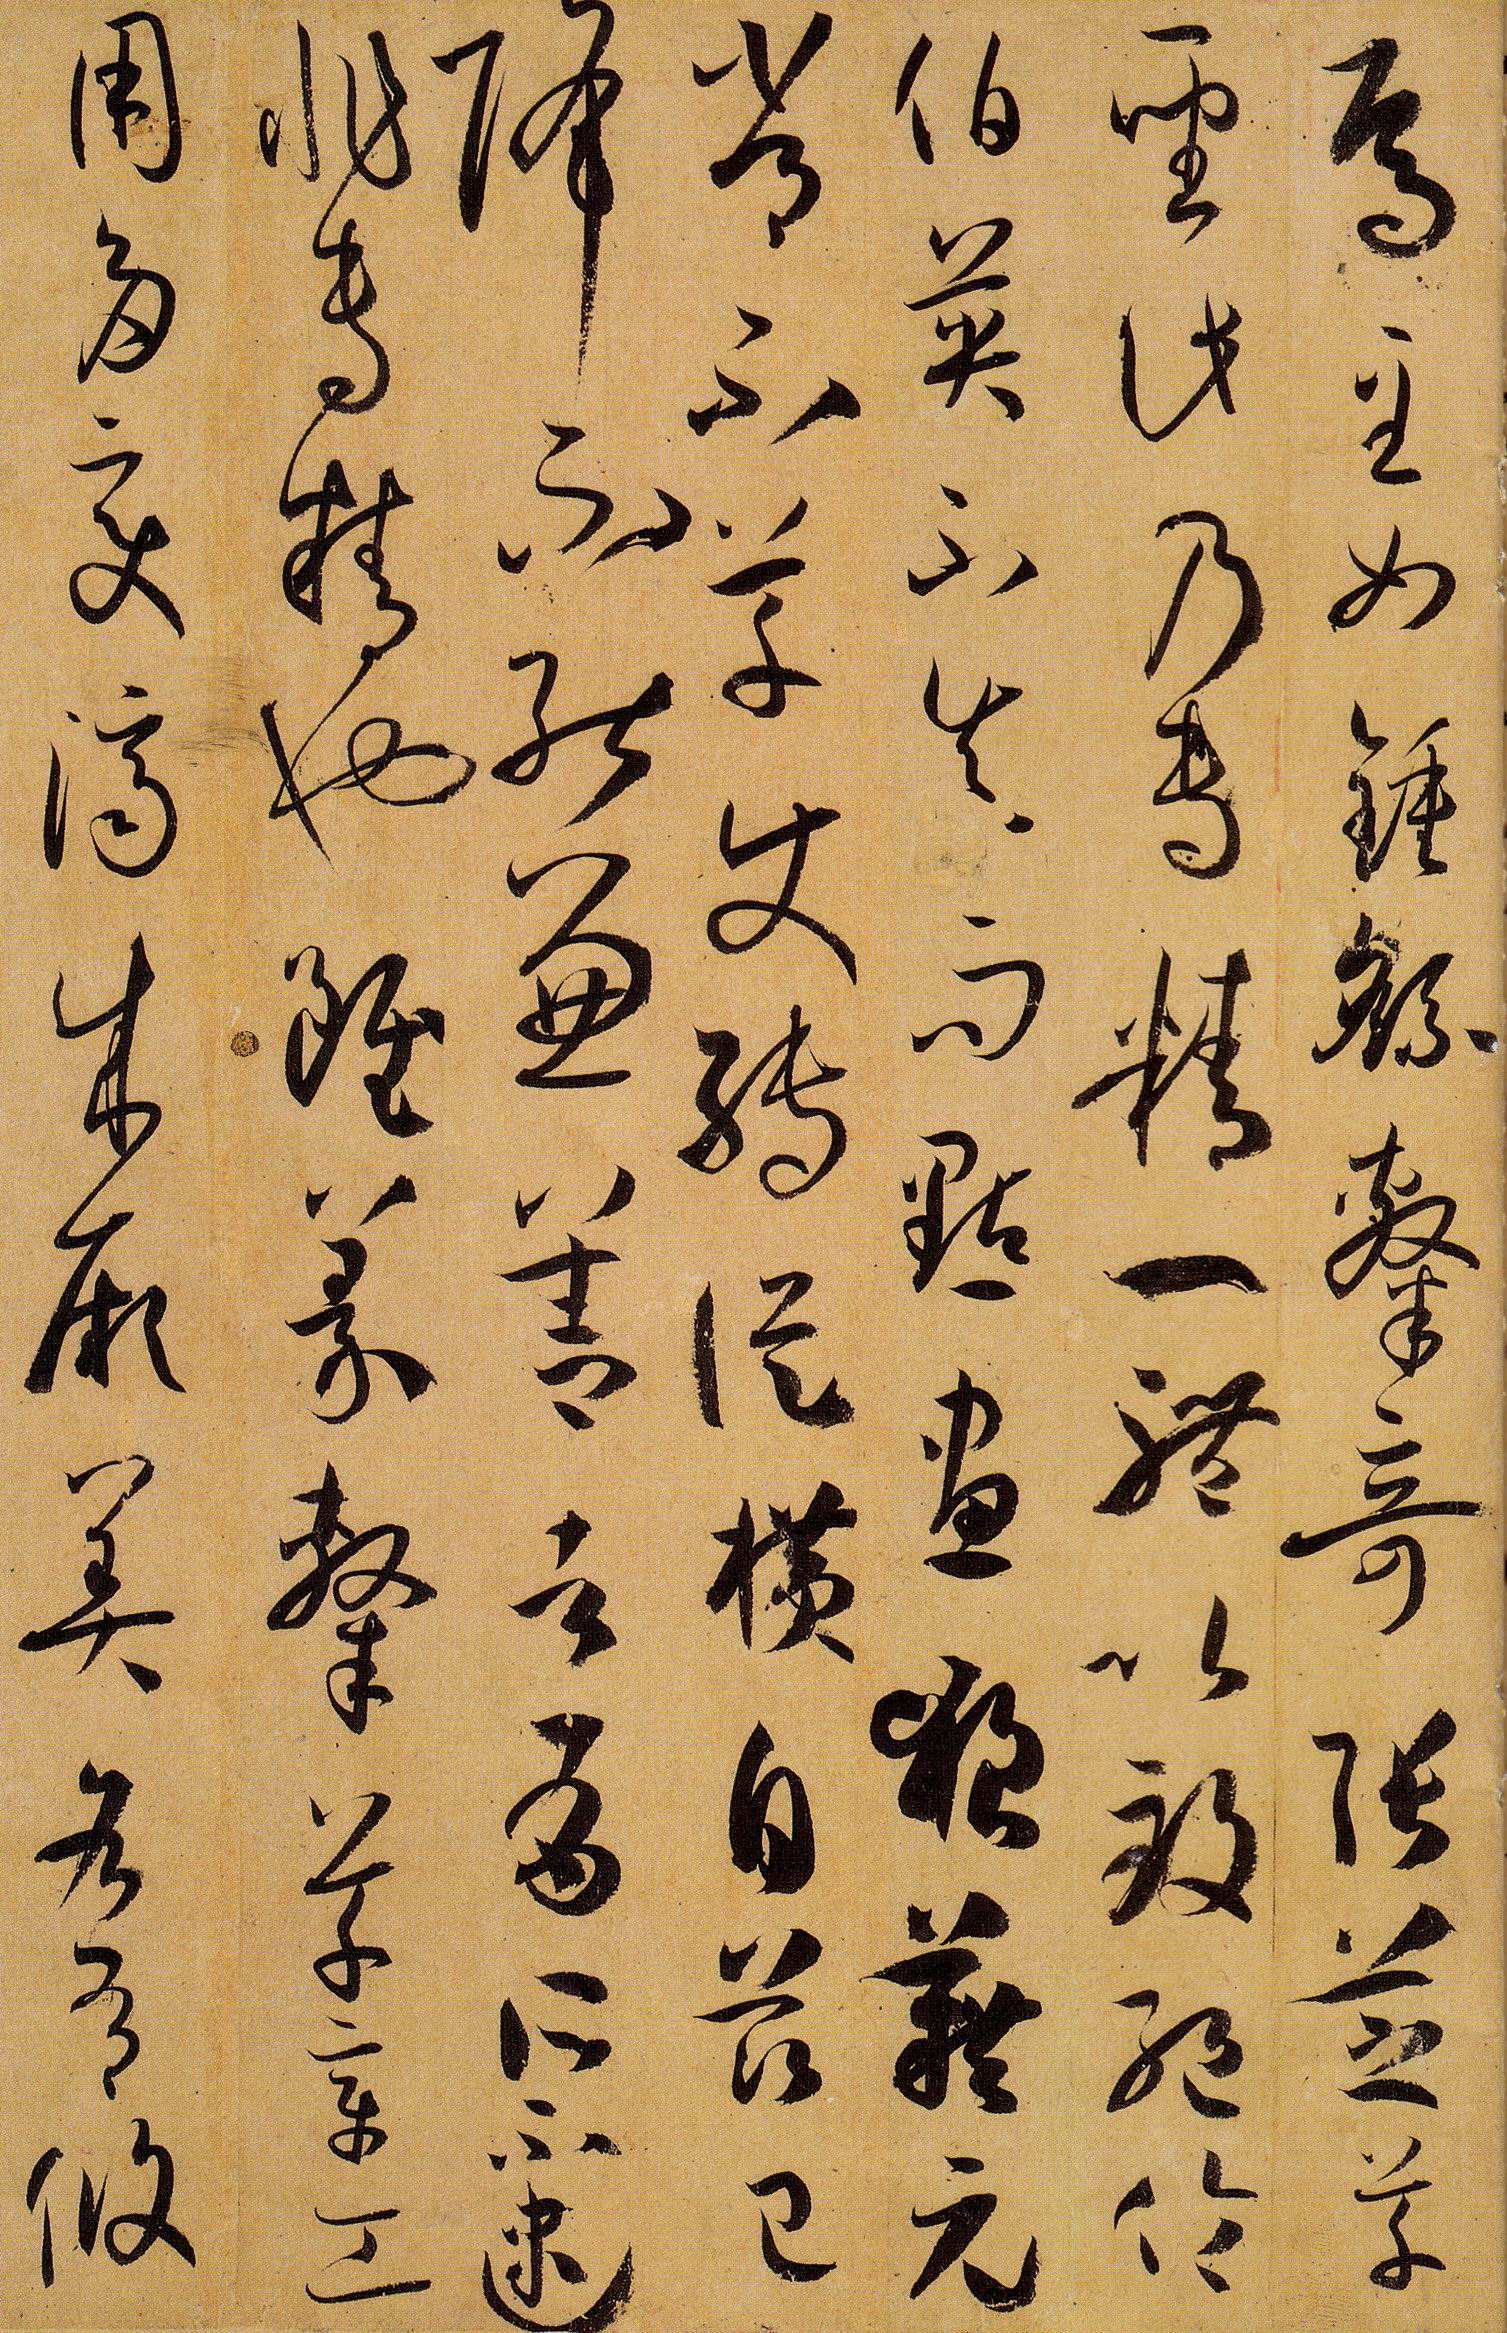 焉至如鍾繇隸奇張芝草
聖此乃專精一體以致絕倫
伯英不真而點畫狼藉元
常不草使轉從橫自茲已
降不能兼善者有所不逮
非專精也雖篆隸草章工
用多變濟成厥美各有攸